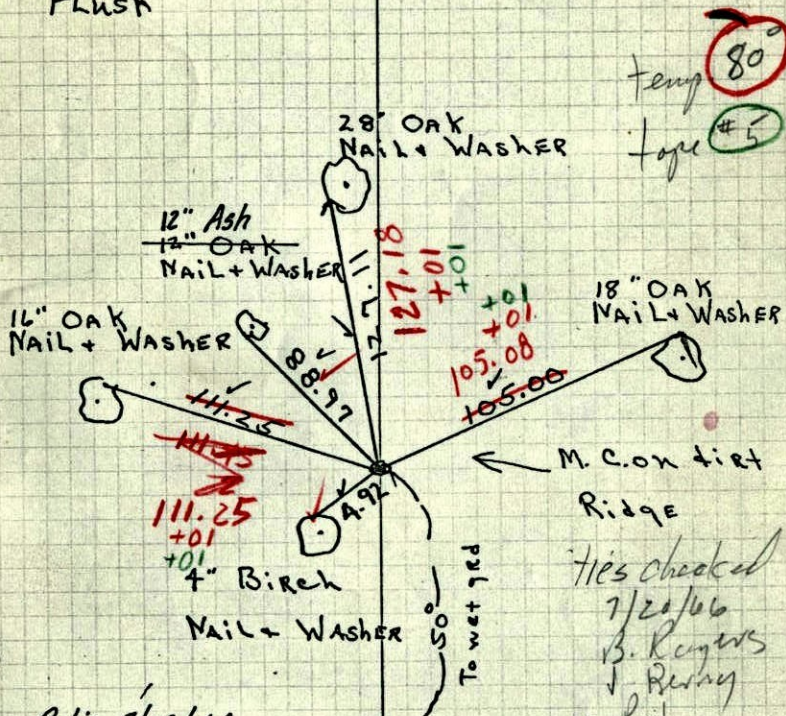 Flush
temp 80°
tape #5
28" OAK
NAIL + WASHER
12" Ash
12" OAK
NAIL + WASHER
16" OAK
NAIL + WASHER
18" OAK
NAIL + WASHER
127.11
127.18
+01
+01
+01
+01
105.08
105.00
88.97
111.25
111.25
+01
+01
4.92
4" BIRCH
NAIL + WASHER
M.C. on dirt
Ridge
50°
To wet grd
ties checked
7/20/66
B. Rogers
J. Berry